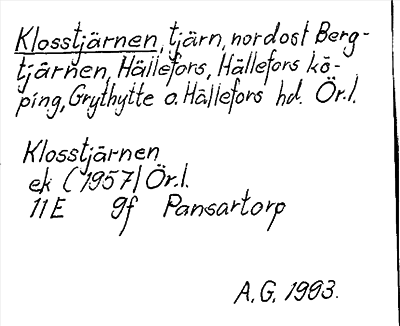 Klosstjärnen, tjärn, nordost Berg-
tjärnen, Hällefors, Hällefors kö-
ping, Grythytte o. Hällefors hd. Ör.l.
Klosstjärnen
ek (1957) Ör.l.
11E 9f Pansartorp
A.G. 1993.